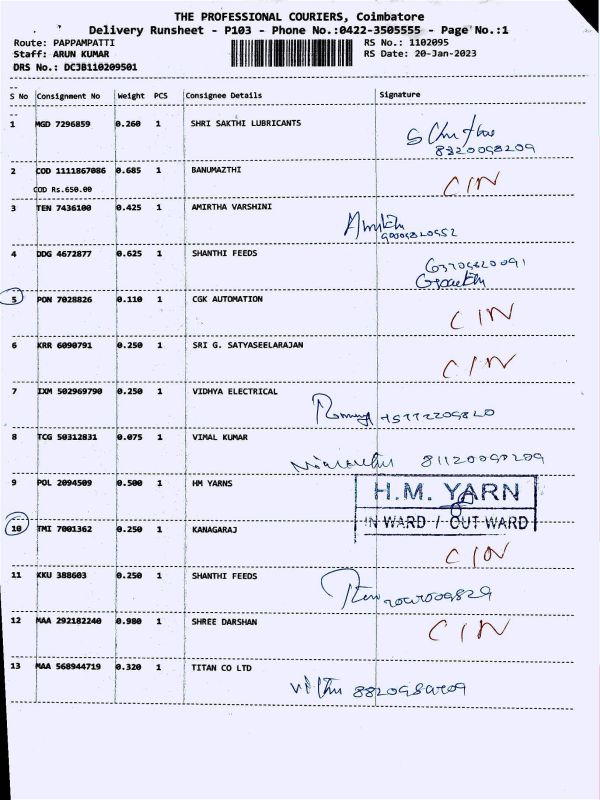 THE PROFESSIONAL COURIERS, Coimbatore
Delivery Runsheet - P103 - Phone No.:0422-3505555 - Page No.:1
Route: PAPPAMPATTI RS No.: 1102095
Staff: ARUN KUMAR RS Date: 20-Jan-2023
DRS No.: DCJB110209501
S No Consignment No Weight PCS Consignee Details Signature
1 MGD 7296859 0.260 1 SHRI SAKTHI LUBRICANTS
2 COD 1111867086 0.685 1 BANUMAZTHI CIN
COD Rs.650.00
3 TEN 7436100 0.425 1 AMIRTHA VARSHINI
4 DDG 4672877 0.625 1 SHANTHI FEEDS
5 PON 7028826 0.110 1 CGK AUTOMATION CIN
6 KRR 6090791 0.250 1 SRI G. SATYASEELARAJAN CIN
7 IXM 502969790 0.250 1 VIDHYA ELECTRICAL
8 TCG 50312831 0.075 1 VIMAL KUMAR
9 POL 2094509 0.500 1 HM YARNS H.M. YARN
IN WARD / OUT WARD
10 TMI 7001362 0.250 1 KANAGARAJ CIN
11 KKU 388603 0.250 1 SHANTHI FEEDS
12 MAA 292182240 0.980 1 SHREE DARSHAN CIN
13 MAA 568944719 0.320 1 TITAN CO LTD